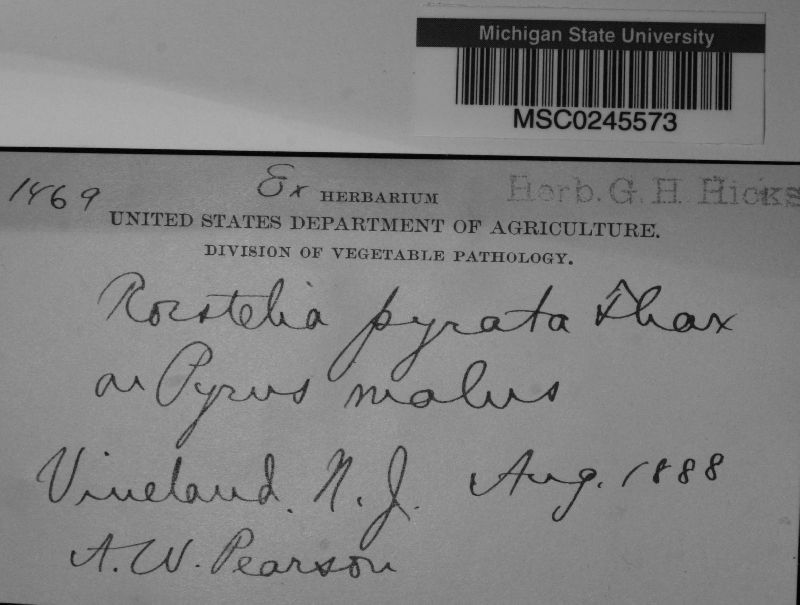 Michigan State University
MSC0245573
1469 Ex HERBARIUM Herb. G. H. Hicks
UNITED STATES DEPARTMENT OF AGRICULTURE.
DIVISION OF VEGETABLE PATHOLOGY.
Roestelia pyrata Thax
on Pyrus malus
Vineland. N. J. Aug. 1888
A. W. Pearson